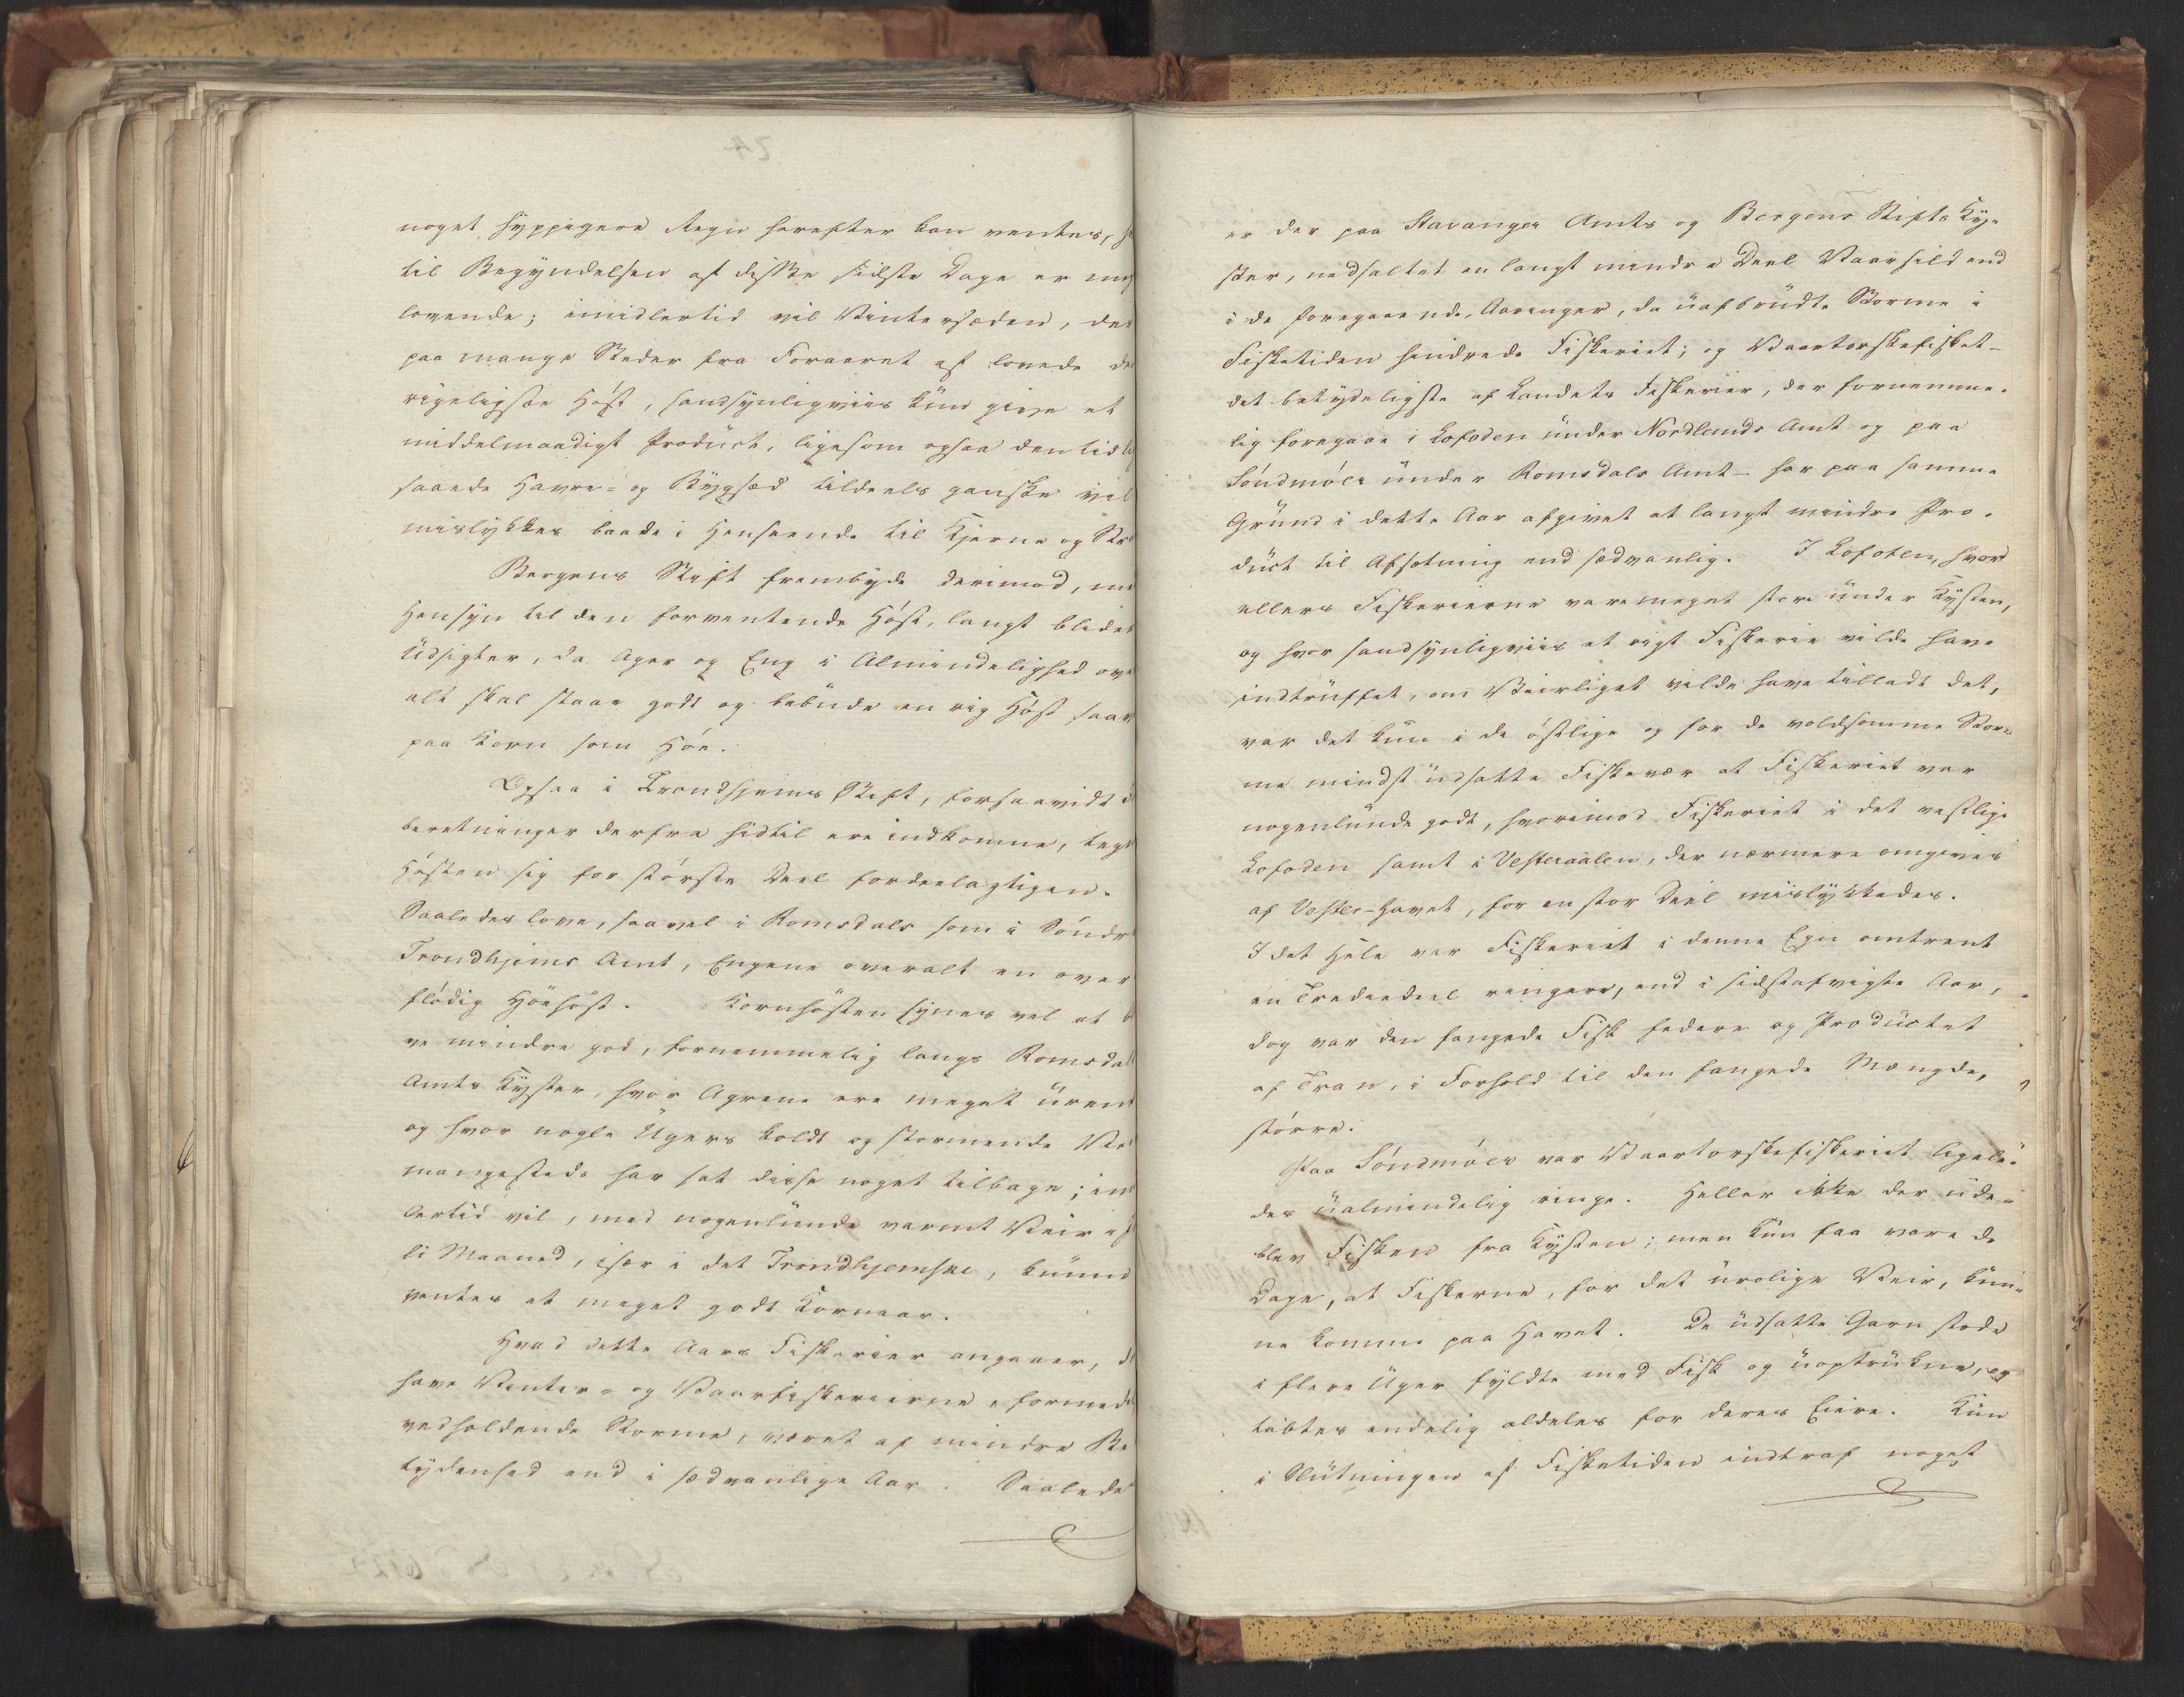 noget hyppigere Regn herefter kan ventes,
til Begyndelsen af disse sidste Dage er
lovende; imidlertid vil Vintersæden, der
paa mange Steder fra Foraaret af lovede
rigeligste Høst, sandsynligviis kun give et
middelmaadigt Product, ligesom ogsaa den
saaede Havre- og Bygsæd tildeels ganske vil
mislykkes baade i Henseende til Kjerne og
Bergens Stift frembyde derimod,
Hensyn til den forventende Høst, langt
Udsigter, da Ager og Eng i Almindelighed
alt skal staae godt og bebude en rig Høst
paa Korn som Høe.
Ogsaa i Trondhjems Stift, forsaavidt
beretninger derfra hidtil ere indkomne,
Høsten sig for største Deel fordeelagtigen.
Saaledes love, saavel i Romsdals som i Søndr
Trondhjems Amt, Engene overalt en over
flødig Høehøst. Kornhøsten synes vel at
ve mindre god, fornemmelig langs Romsdal
Amts Kyster, hvor Agrene ere meget
og hvor nogle Ugers koldt og stormende
mangestede har sat disse noget tilbage;
lertid vil, med nogenlunde varmt Veir
li Maaned, især i det Trondhjemske,
ventes et meget godt Kornaar.
Hvad dette Aars Fiskerier angaaer,
have Vinter- og Vaarfiskerierne, formed
vedholdende Storme, været af mindre Be
tydenhed end i sædvanlige Aar. Saalede
er der paa Stavanger Amts og Bergens Stifts Ky-
ster, nedsaltet en langt mindre Deel Vaarsild end
i de foregaaende Aaringer, da uafbrudte Storme i
Fisketiden hindrede Fiskeriet; og Vaartorskefisket -
det betydeligste af Landets Fiskerier, der fornemme-
lig foregaae i Lofoden under Nordlands Amt og paa
Søndmøer under Romsdals Amt - har paa samme
Grund i dette Aar afgivet et langt mindre Pro-
duct til Afsetning end sædvanlig. I Lofoten, hvor
ellers Fiskerierne vare meget større under Kysten,
og hvor sandsynligviis et rigt Fiskerie vilde have
indtruffet, om Veirliget vilde have tilladt det,
var det kun i de østlige og for de voldsomme Stor-
me mindst udsatte Fiskevær at Fiskeriet var
nogenlunde godt, hvorimod Fiskeriet i det vestlige
Lofoden samt i Vesteraalen, der nærmere omgives
af Vester-Havet, for en stor Deel mislykkedes.
I det Hele var Fiskeriet i denne Egn omtrent
en Trediedeel ringere, end i sidstafvigte Aar,
dog var den fangede Fisk federe og Productet
af Tran, i Forhold til den fangede Mængde,
større.
Paa Søndmøer var Vaartorskefiskeriet ligele-
des ualmindelig ringe. Heller ikke der ude-
blev Fisken fra Kysten; men kun faa vare de
Dage, at Fiskerne, for det urolige Veir, kun-
ne komme paa Havet. De udsatte Garn stode
i flere Uger fyldte med Fisk og uoptrukne, og
tabtes endelig aldeles for deres Eiere. Kun
i Slutningen af Fisketiden indtraf noget